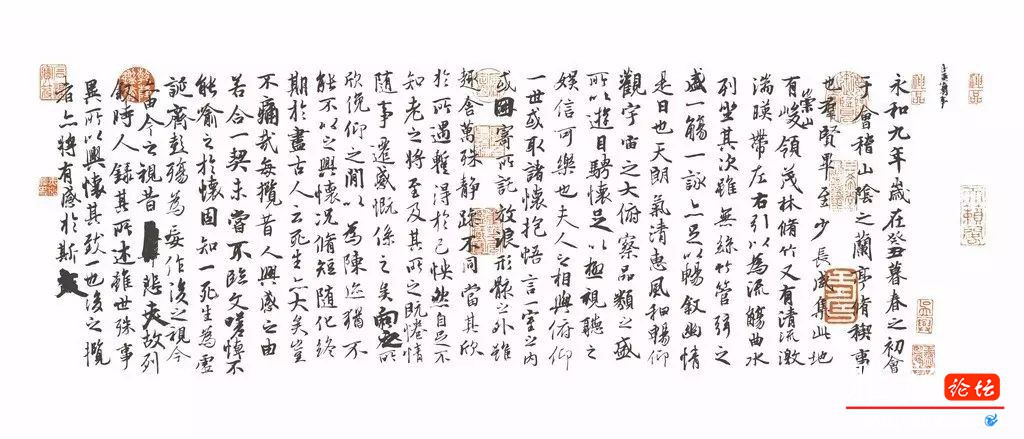 永和九年歲在癸丑暮春之初會
于會稽山陰之蘭亭脩稧事
也羣賢畢至少長咸集此地
有崇山峻領茂林脩竹又有清流激
湍暎帶左右引以為流觴曲水
列坐其次雖無絲竹管弦之
盛一觴一詠亦足以暢敘幽情
是日也天朗氣清惠風和暢仰
觀宇宙之大俯察品類之盛
所以遊目騁懷足以極視聽之
娛信可樂也夫人之相與俯仰
一世或取諸懷抱悟言一室之內
或因寄所託放浪形骸之外雖
趣舍萬殊靜躁不同當其欣
於所遇暫得於己怏然自足不
知老之將至及其所之既惓情
隨事遷感慨係之矣向之所
欣俛仰之閒以為陳迹猶不
能不以之興懷況脩短隨化終
期於盡古人云死生亦大矣豈
不痛哉每攬昔人興感之由
若合一契未嘗不臨文嗟悼不
能喻之於懷固知一死生為虛
誕齊彭殤為妄作後之視今
亦由今之視昔悲夫故列
敘時人錄其所述雖世殊事
異所以興懷其致一也後之攬
者亦將有感於斯文
论坛